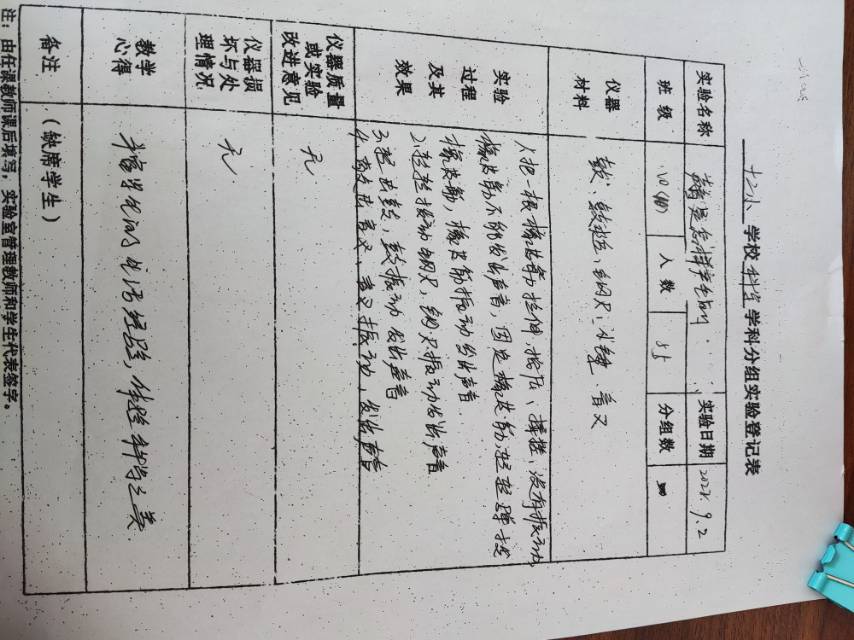 十二小 学校 科学 学科分组实验登记表
实验名称 声音是怎样产生的 实验日期 9.2
班级 人数 分组数
仪器材料 鼓、鼓槌、钢尺、音叉
实验过程及其效果 1、把一根橡皮筋拉伸、按压、揉搓，没有振动，
橡皮筋不能发出声音，固定橡皮筋，轻轻弹拨
橡皮筋，橡皮筋振动发出声音。
2、轻轻拨动钢尺，钢尺振动发出声音
3、轻击鼓，鼓振动发出声音
4、音叉，音叉振动，发出声音
仪器质量或实验改进意见 无
仪器损坏与处理情况 无
教学心得 丰富学生的生活经验，体验科学之美
备注 （缺席学生）
注：由任课教师课后填写，实验室管理教师和学生代表签字。